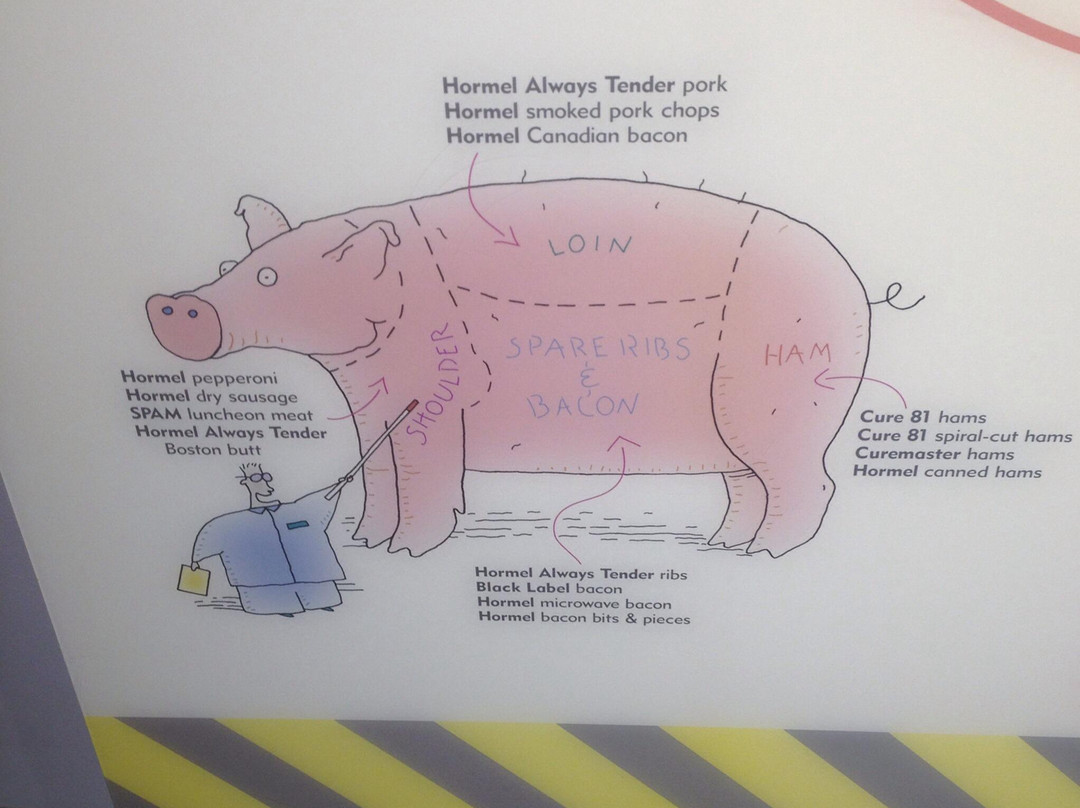 Hormel Always Tender pork
Hormel smoked pork chops
Hormel Canadian bacon
LOIN
SPARE RIBS
&
BACON
HAM
SHOULDER
Hormel pepperoni
Hormel dry sausage
SPAM luncheon meat
Hormel Always Tender
Boston butt
Cure 81 hams
Cure 81 spiral-cut hams
Curemaster hams
Hormel canned hams
Hormel Always Tender ribs
Black Label bacon
Hormel microwave bacon
Hormel bacon bits & pieces